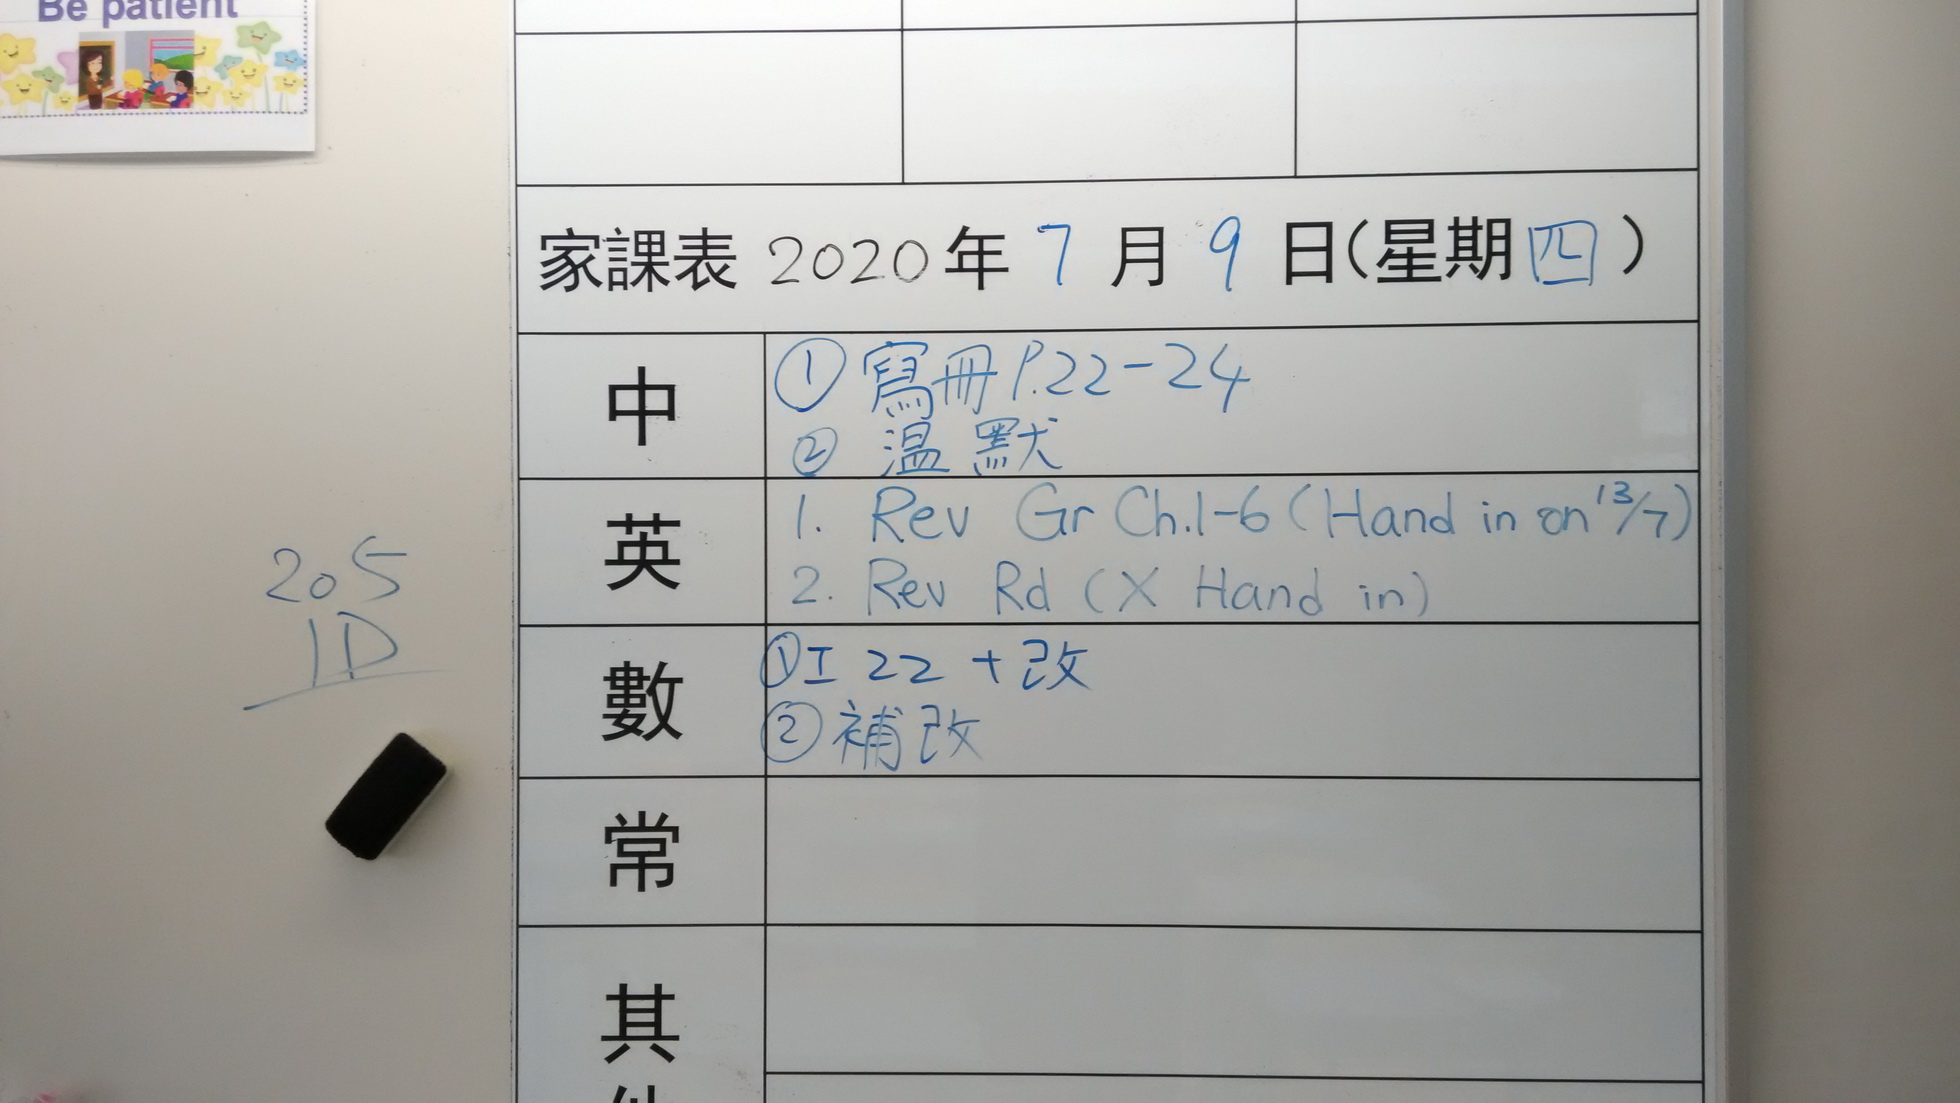 Be patient
家課表 2020年 7 月 9 日(星期四)
中
① 寫冊 P.22-24
② 温默
英
1. Rev Gr Ch.1-6 (Hand in on 13/7)
2. Rev Rd (X Hand in)
205
1D
數
①工 22 + 改
②補改
常
其